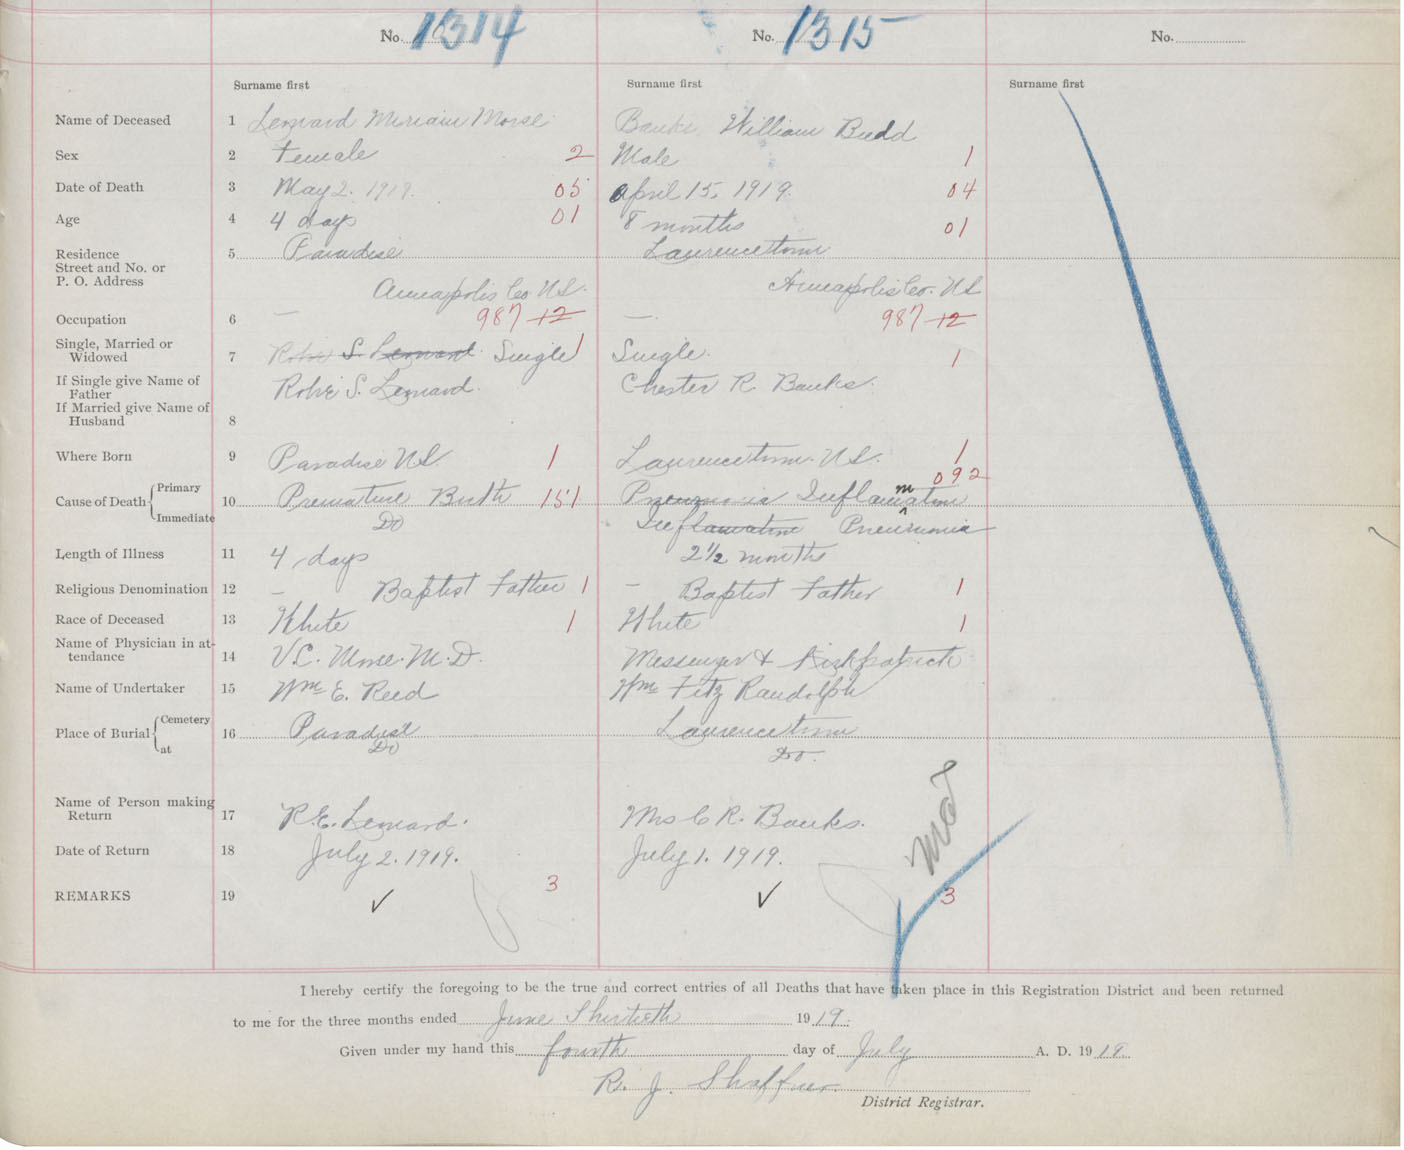 No. 1314 No. 1315 No.
Surname first Surname first Surname first
Name of Deceased 1 Leonard Miriam Morse Banks William Budd
Sex 2 Female 2 Male 1
Date of Death 3 May 2. 1919. 05 April 15, 1919. 04
Age 4 4 days 01 8 months 01
Residence 5 Paradise Laurencetown
Street and No. or
P. O. Address Annapolis Co N.S. Annapolis Co. N.S.
Occupation 6 — 987 12 — 987 12
Single, Married or
Widowed 7 S. Leonard Single 1 Single. 1
If Single give Name of
Father S. Leonard. Chester R. Banks.
If Married give Name of
Husband 8
Where Born 9 Paradise N.S. 1 Laurencetown. N.S. 1
092
Cause of Death Primary 10 Premature Birth 151 Pneumonia Inflammation
Immediate Do Inflamation Pneumonia
Length of Illness 11 4 days 2 1/2 months
Religious Denomination 12 – Baptist Father 1 – Baptist Father 1
Race of Deceased 13 White 1 White 1
Name of Physician in at-
tendance 14 Morse. M.D. Messenger & Kirkpatrick
Name of Undertaker 15 Wm E. Reed Wm Fitz Randolph
Place of Burial Cemetery 16 Paradise Laurencetown
at Do Do.
Name of Person making
Return 17 R.E. Leonard. Mrs C R. Banks.
Date of Return 18 July 2. 1919. July 1. 1919.
REMARKS 19 ✓ 3 ✓ 3
I hereby certify the foregoing to be the true and correct entries of all Deaths that have taken place in this Registration District and been returned
to me for the three months ended June Thirtieth 1919.
Given under my hand this fourth day of July A. D. 1919.
R. J. Shaffner.
District Registrar.